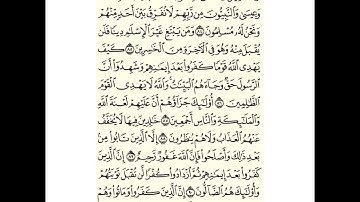 وَعِيسَىٰ وَالنَّبِيُّونَ مِن رَّبِّهِمْ لَا نُفَرِّقُ بَيْنَ أَحَدٍ مِّنْهُمْ
وَنَحْنُ لَهُ مُسْلِمُونَ ٨٤ وَمَن يَبْتَغِ غَيْرَ الْإِسْلَامِ دِينًا فَلَن
يُقْبَلَ مِنْهُ وَهُوَ فِي الْآخِرَةِ مِنَ الْخَاسِرِينَ ٨٥ كَيْفَ
يَهْدِي اللَّهُ قَوْمًا كَفَرُوا بَعْدَ إِيمَانِهِمْ وَشَهِدُوا أَنَّ
الرَّسُولَ حَقٌّ وَجَاءَهُمُ الْبَيِّنَاتُ ۚ وَاللَّهُ لَا يَهْدِي الْقَوْمَ
الظَّالِمِينَ ٨٦ أُولَٰئِكَ جَزَاؤُهُمْ أَنَّ عَلَيْهِمْ لَعْنَةَ اللَّهِ
وَالْمَلَائِكَةِ وَالنَّاسِ أَجْمَعِينَ ٨٧ خَالِدِينَ فِيهَا لَا يُخَفَّفُ
عَنْهُمُ الْعَذَابُ وَلَا هُمْ يُنظَرُونَ ٨٨ إِلَّا الَّذِينَ تَابُوا مِن
بَعْدِ ذَٰلِكَ وَأَصْلَحُوا فَإِنَّ اللَّهَ غَفُورٌ رَّحِيمٌ ٨٩ إِنَّ الَّذِينَ
كَفَرُوا بَعْدَ إِيمَانِهِمْ ثُمَّ ازْدَادُوا كُفْرًا لَّن تُقْبَلَ تَوْبَتُهُمْ
وَأُولَٰئِكَ هُمُ الضَّالُّونَ ٩٠ إِنَّ الَّذِينَ كَفَرُوا وَمَاتُوا وَهُمْ